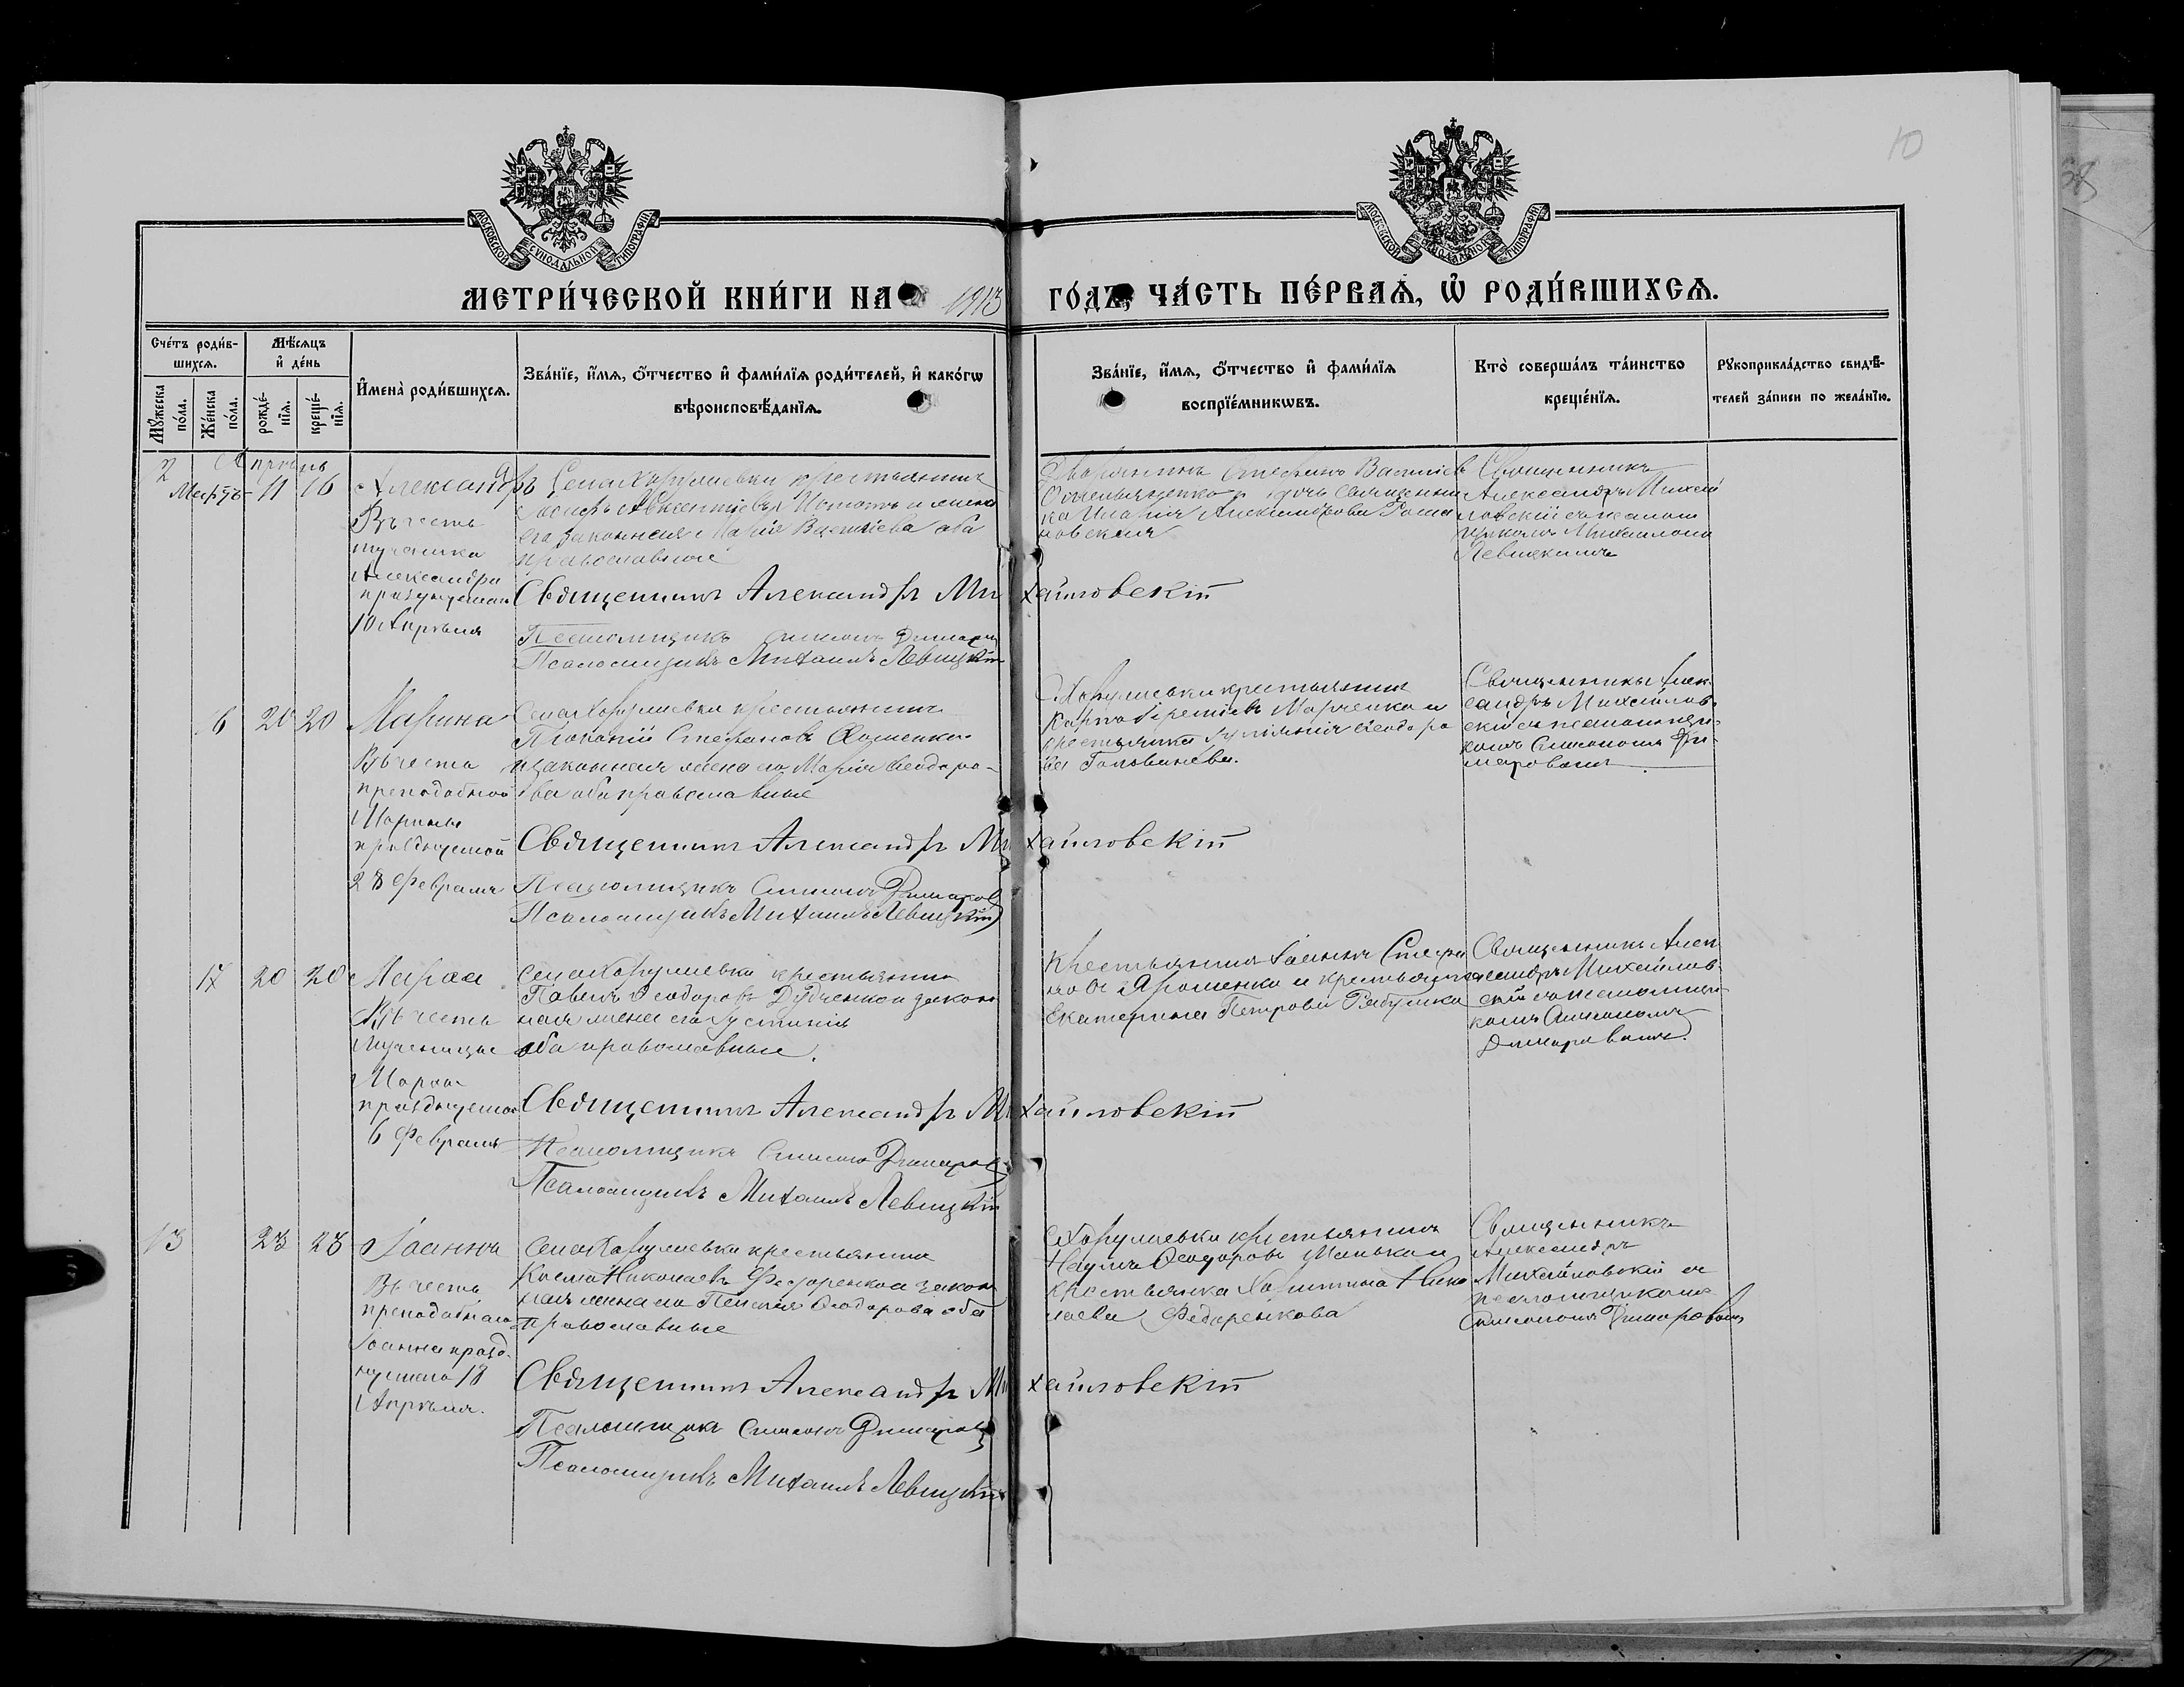 10
МОСКОВСКОЙ СѴНОДАЛЬНОЙ ТИПОГРАФІИ
МОСКОВСКОЙ СѴНОДАЛЬНОЙ ТИПОГРАФІИ
МЕТРИ́ЧЕСКОЙ КНИ́ГИ НА 1913 ГО́ДЪ, ЧА́СТЬ ПЕ́РВАѦ, Ѡ҆ РОДИ́ВШИХСѦ.
Сче́тъ роди́в-
шихсѧ.
Мꙋ́жеска по́ла.
Же́нска по́ла.
Мѣ́сѧцъ
и҆ де́нь
рожде́-
нїѧ.
креще́-
нїѧ.
И҆мена̀ роди́вшихсѧ.
Зва́нїе, и҆́мѧ, ѻ҆́тчество и҆ фами́лїѧ роди́телей, и҆ како́гѡ
вѣроисповѣ́данїѧ.
Зва́нїе, и҆́мѧ, ѻ҆́тчество и҆ фами́лїѧ
воспрїе́мникѡвъ.
Кто̀ соверша́лъ та́инство
креще́нїѧ.
Рꙋкоприкла́дство свидѣ́-
телей за́писи по жела́нїю.
Апрѣль
2 Мартъ 11 16
Александръ
Въ честь
мученика
Александра
празднуемаго
10 Апрѣля
Села Харулиевки крестьянинъ
его законная Марія оба
православные
Священникъ Александръ Михайловскій
Псаломщикъ Симеонъ Димаров
Псаломщикъ Михаилъ Левицкій
Дворянинъ Стефанъ
и дочь священни
ка Александрова Рома
новская
Священникъ
Александръ Михай
ловскій съ псалом
щикомъ Михаиломъ
Левицкимъ
16 20 20
Марина
Въ честь
преподобной
Марины
празднуемой
28 Февраля
крестьянинъ
Стефановъ Хоменко
и законная жена его Марія Ѳеодоро-
ва оба православные
Священникъ Александръ Михайловскій
Псаломщикъ Симеонъ Димаров
Псаломщикъ Михаилъ Левицкій
крестьянинъ
Марченко и
крестьянка Ѳеодоро
ва Головинева.
Священникъ Алек-
сандръ Михайлов-
скій съ псаломщи-
комъ Симеономъ Ди-
маровымъ
17 20 20
Марѳа
Въ честь
Мученицы
Марѳы
празднуемой
6 Февраля
крестьянинъ
Павелъ Ѳеодоровъ Дудченко и закон
ная жена его Іустинія
оба православные.
Священникъ Александръ Михайловскій
Псаломщикъ Симеонъ Димаров
Псаломщикъ Михаилъ Левицкій
Крестьянинъ Іоаннъ Стефа
новъ Ярошенко и крестьянка
Екатерина Петрова Рябушка
Священникъ Алек
сандръ Михайлов-
скій съ псаломщи-
комъ Симеономъ
Димаровымъ.
13 23 28
Іоаннъ
Въ честь
преподобнаго
Іоанна празд-
нуемаго 18
Апрѣля.
крестьянинъ
Косма Николаевъ Федоренко и закон
ная жена его Пелагія Ѳеодорова оба
православные
Священникъ Александръ Михайловскій
Псаломщикъ Симеонъ Димаров
Псаломщикъ Михаилъ Левицкій
крестьянинъ
Наумъ Ѳеодоровъ Манько и
крестьянка Харитина Нико
лаева Федоренкова
Священникъ
Александръ
Михайловскій съ
псаломщикомъ
Симеономъ Димаровымъ